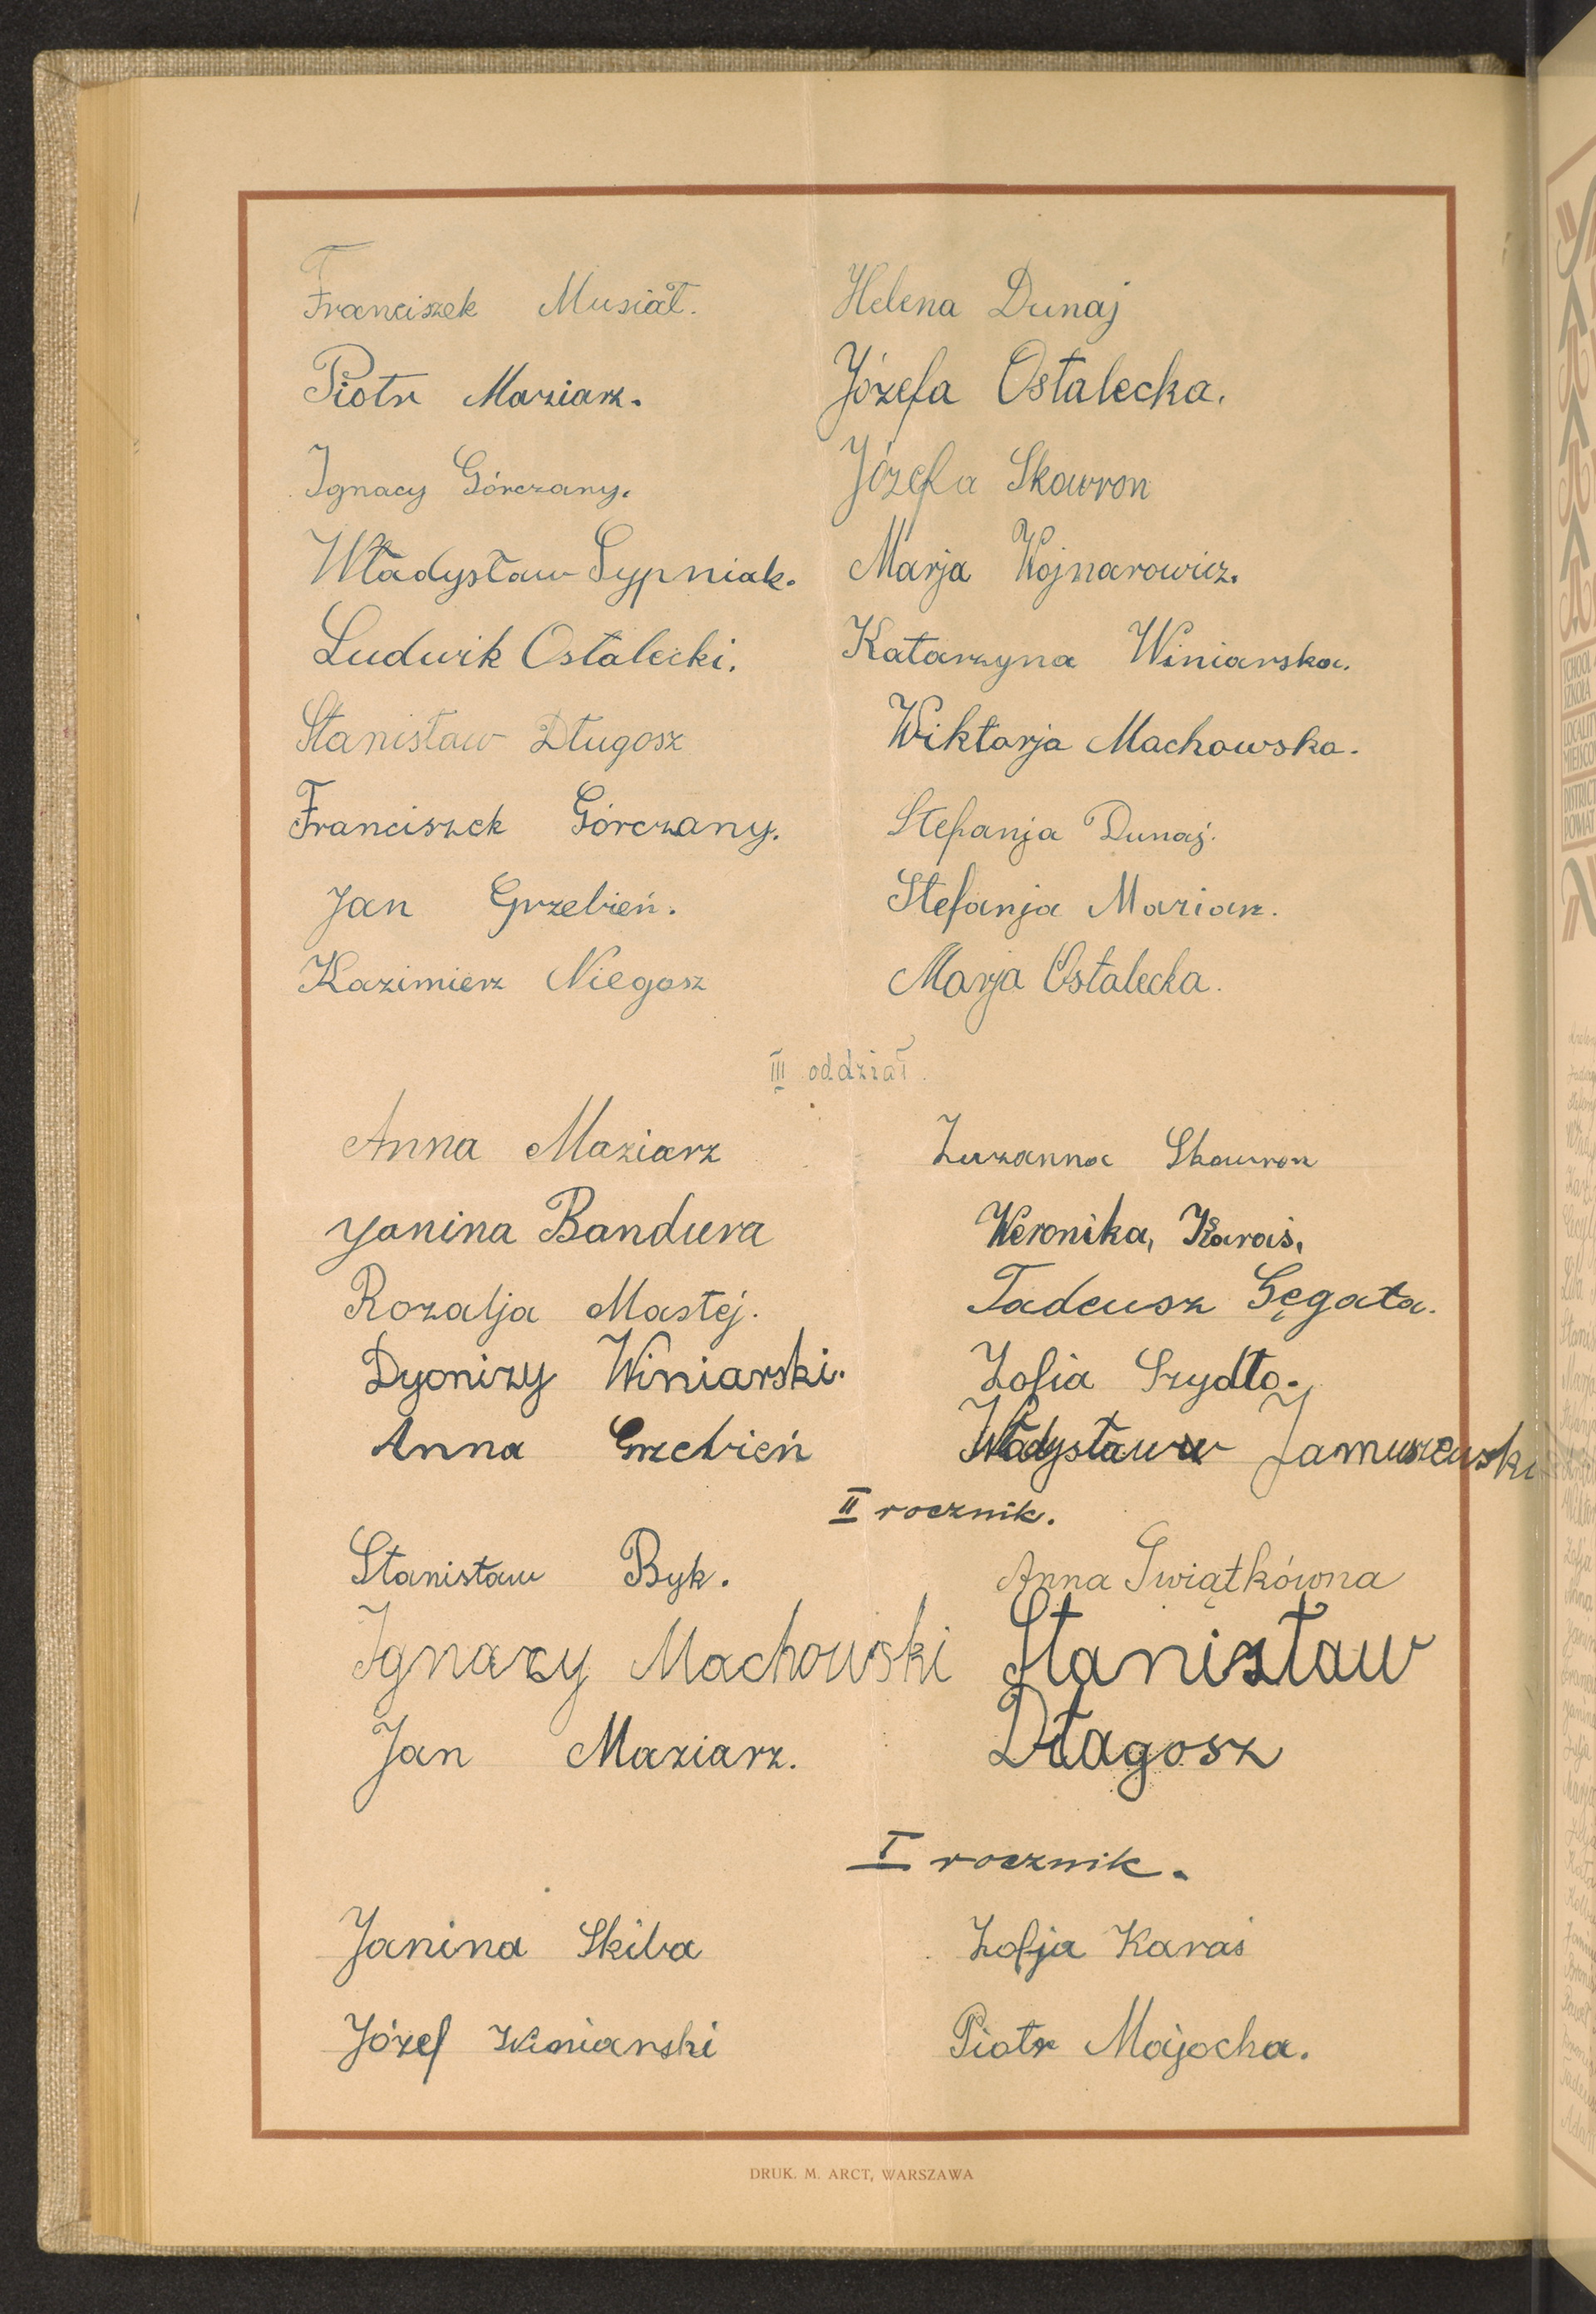 Franciszek Musiał. Helena Dunaj
Piotr Maziarz. Józefa Ostalecka.
Ignacy Górczany. Józefa Skowron
Władysław Sypniak. Marja Wojnarowicz.
Ludwik Ostalecki. Katarzyna Winiarska.
Stanisław Długosz Wiktorja Machowska.
Franciszek Górczany. Stefanja Dunaj.
Jan Grzebień. Stefanja Maziarz.
Kazimierz Niegosz Marja Ostalecka.
III oddział.
Anna Maziarz Zuzanna Skowron
Janina Bandura Weronika, Karaś.
Rozalja Mastej. Tadeusz Gęgała.
Dyonizy Winiarski. Zofia Szydło.
Anna Grzebień Władysław Jamuszewski
II rocznik.
Stanisław Byk. Anna Świątkówna
Ignacy Machowski Stanisław
Jan Maziarz. Dłagosz
I rocznik.
Janina Skiba Zofja Karaś
Józef Winiarski Piotr Majocha.
DRUK. M. ARCT, WARSZAWA